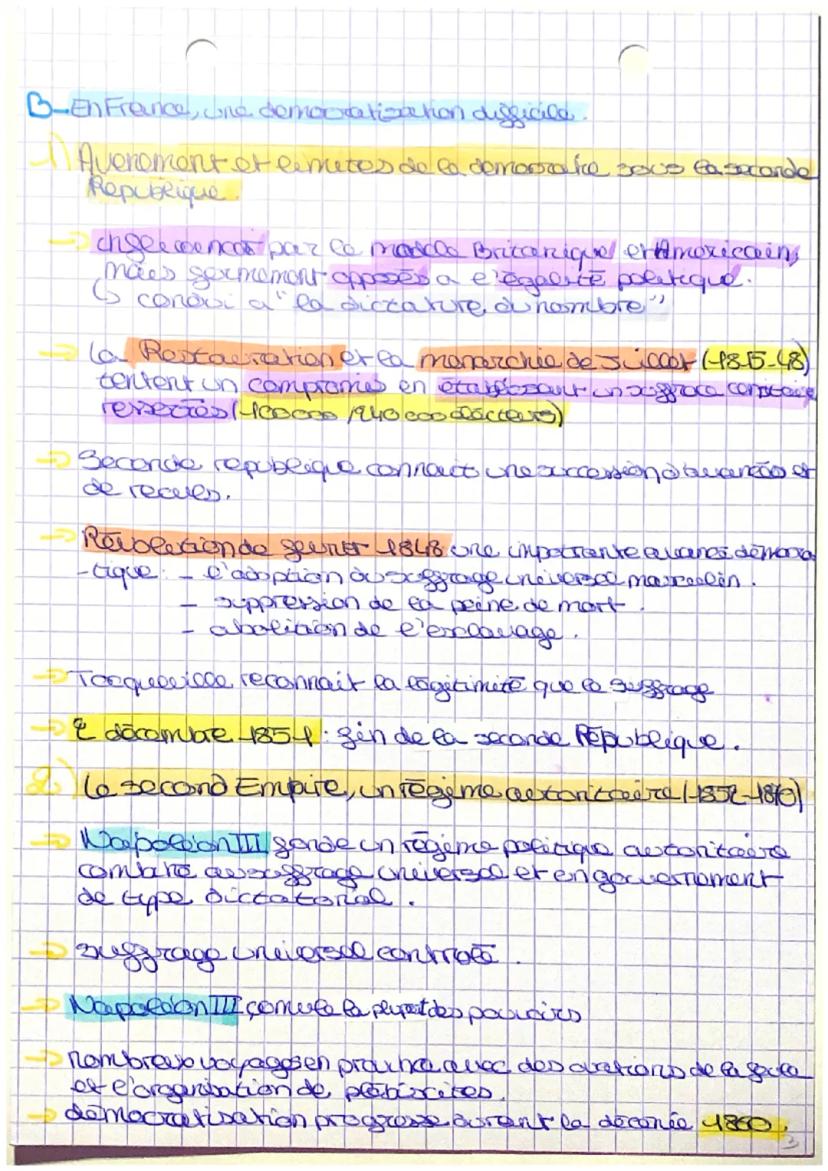 B-En France, une democratisation difficile.
1) Avenement et limites de la democratie sous la seconde
Republique.
→ influencés par le modèle Britanique et Américain,
mais fermement opposés a l'égalité politique.
↳ conduit a "la dictature du nombre"
→ La Restauration et la monarchie de Juillet (1815-48)
tentent un compromis en établissant un suffrage censitaire
resserrés (100 000 / 240 000 électeurs)
→ Seconde republique connait une succession d'avancées et
de recules.
→ Révolution de février 1848 une importante avancé démocra
-tique : - l'adoption du suffrage universel masculin.
- suppression de la peine de mort.
- abolition de l'esclavage.
→ Tocqueville reconnait la légitimité que le suffrage
→ 2 décembre 1851 : fin de la seconde République.
2) Le second Empire, un régime autoritaire (1852-1870)
→ Napoléon III fonde un régime politique autoritaire
combiné au suffrage universel et en gouvernement
de type dictatorial.
→ suffrage universel contrôlé.
→ Napoléon III cumule la plupart des pouvoirs
→ nombreux voyages en province avec des ovations de la foule
et l'organisation de plébiscites.
→ démocratisation progresse durant la décénie 1860.
3